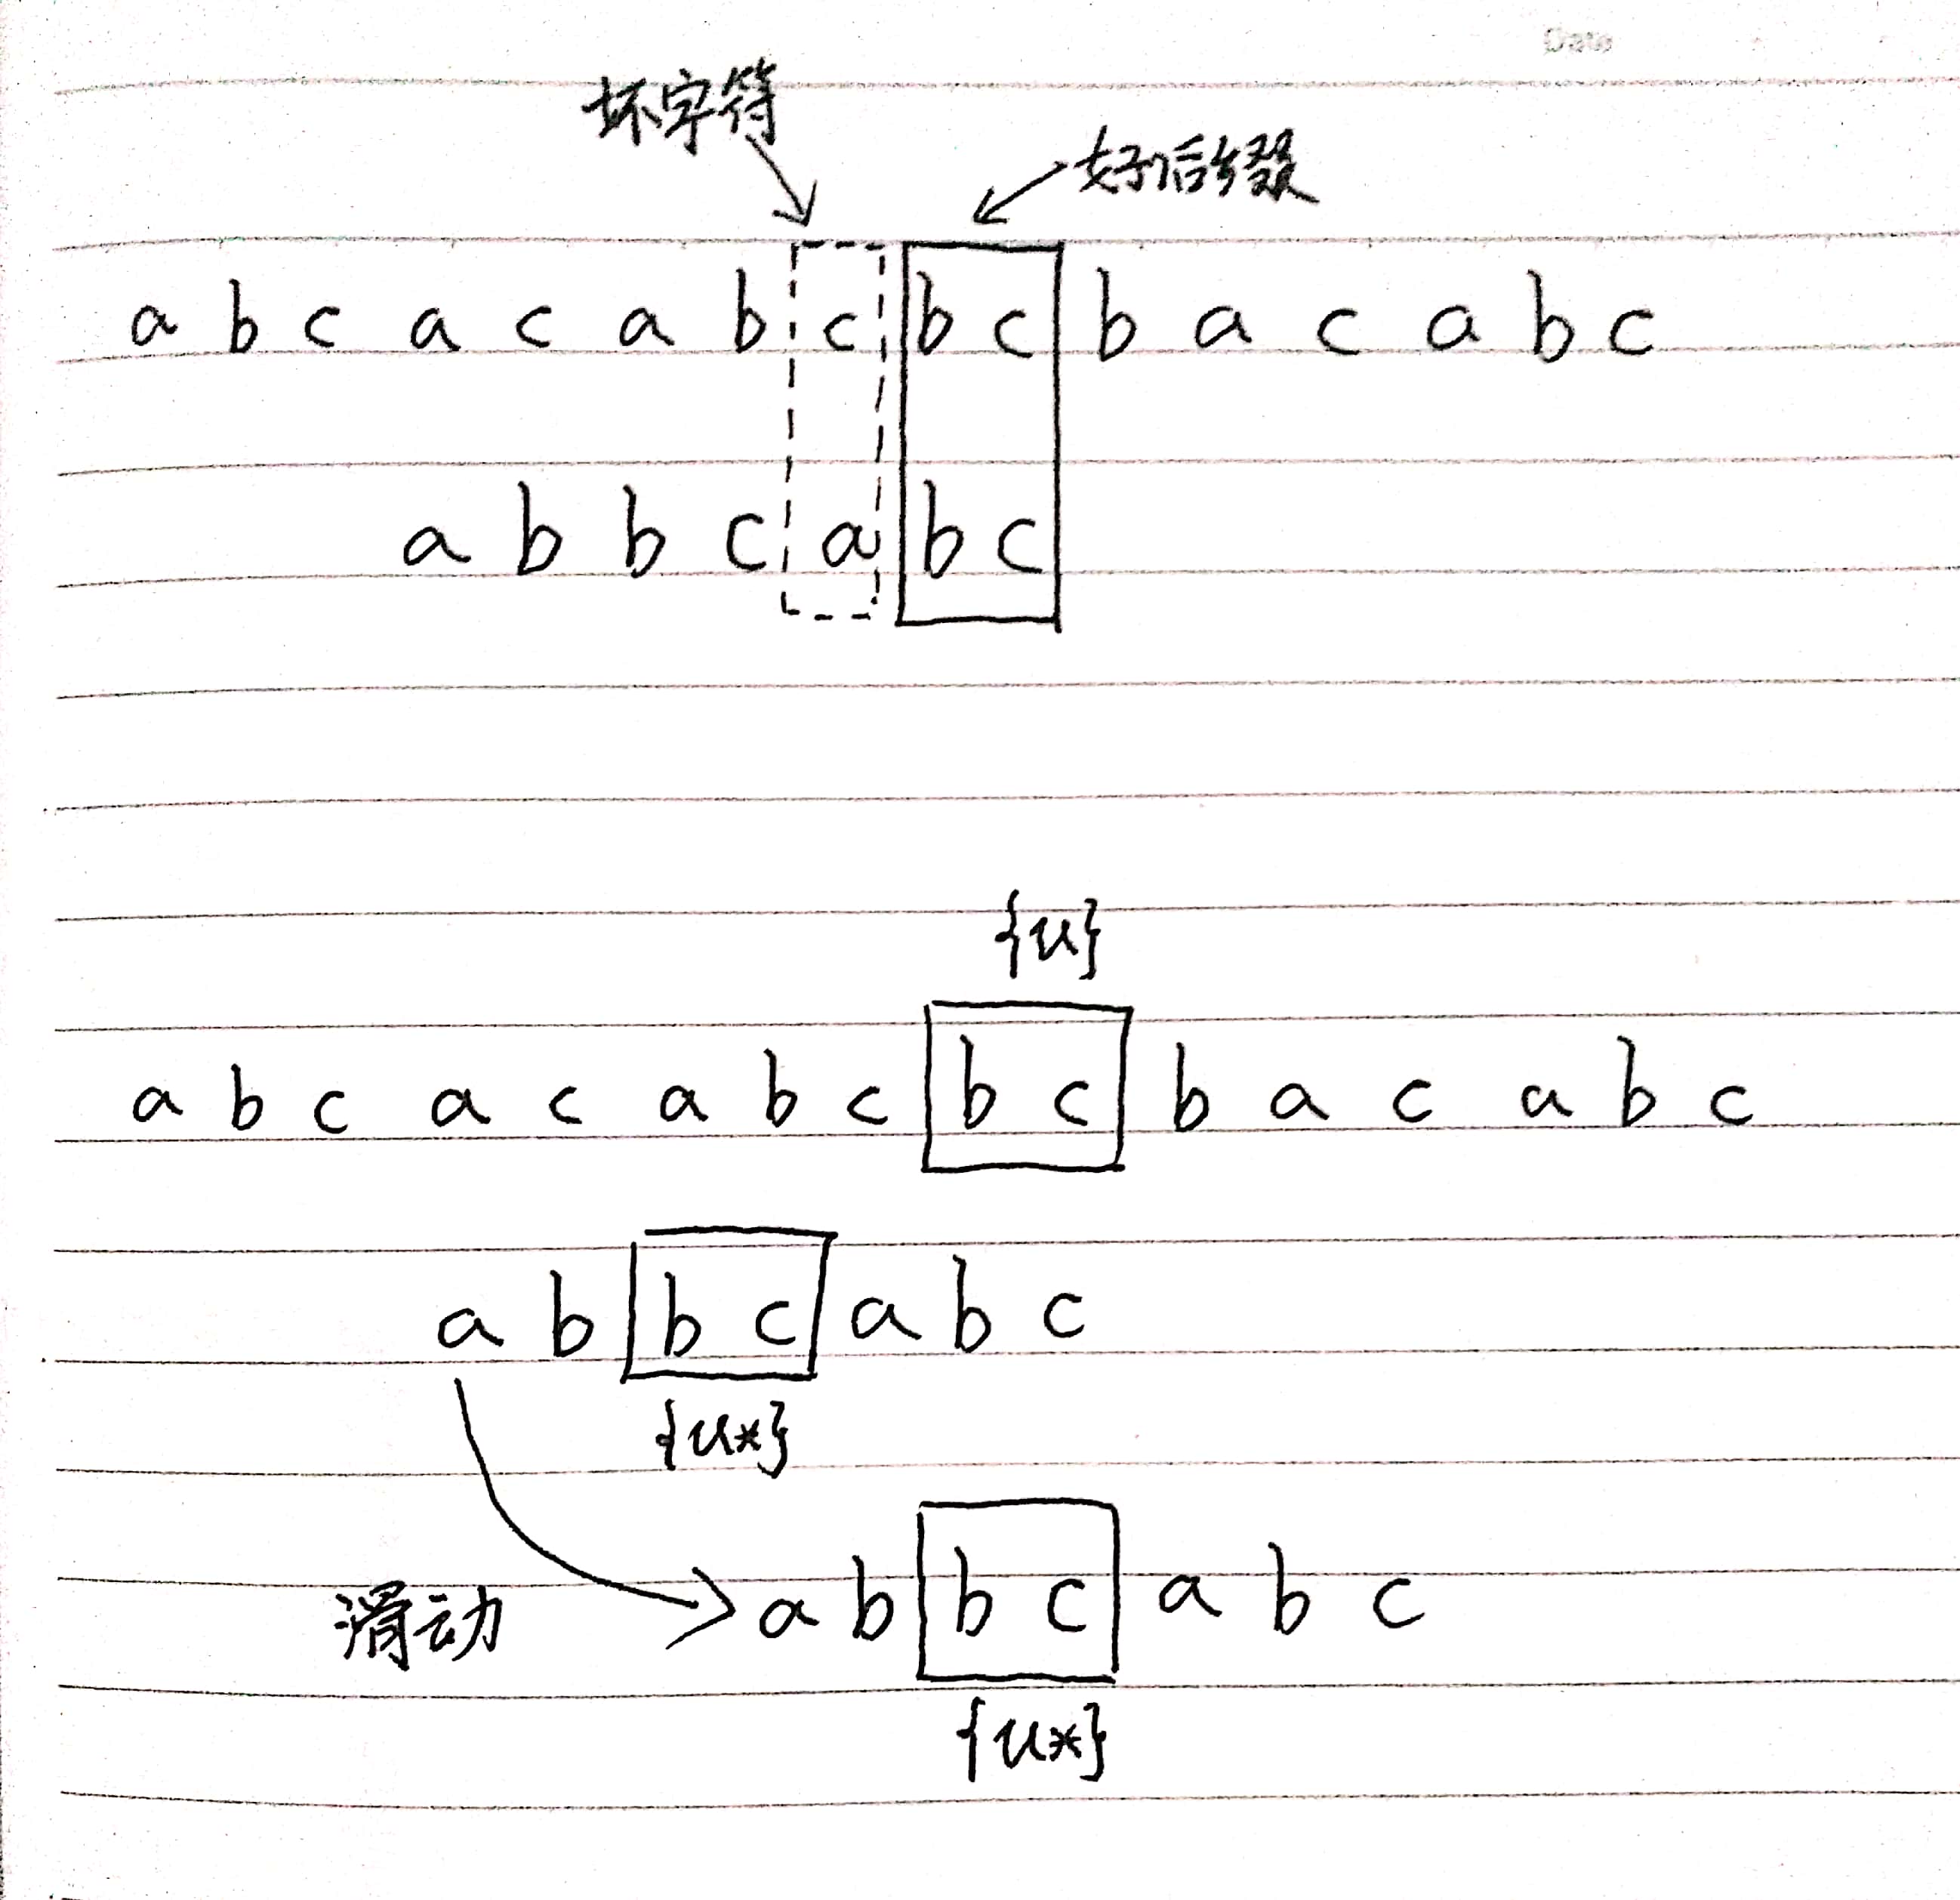 Date
坏字符
好后缀
a b c a c a b c b c b a c a b c
a b b c a b c
{u}
a b c a c a b c b c b a c a b c
a b b c a b c
{u*}
滑动 a b b c a b c
{u*}